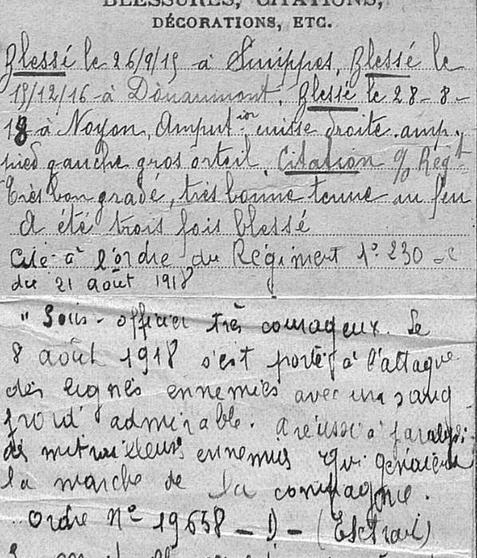 BLESSURES, CITATIONS,
DÉCORATIONS, ETC.
Blessé le 26/9/15 à Suippes, Blessé le
15/12/16 à Douaumont, Blessé le 28-8-
18 à Noyon, Ampution cuisse droite, amp.
pied gauche gros orteil, Citation O/ Régt
Très bon gradé, très bonne tenue au feu
A été trois fois blessé
Cité à l'ordre du Régiment n° 230 -c
du 21 août 1918
" Sous-officier très courageux. Le
8 août 1918 s'est porté à l'attaque
des lignes ennemies avec un sang
froid admirable. a réussi à paralysé
des mitrailleurs ennemis qui gênaient
la marche de la compagnie.
Ordre N° 19658 - D - (Extrait)